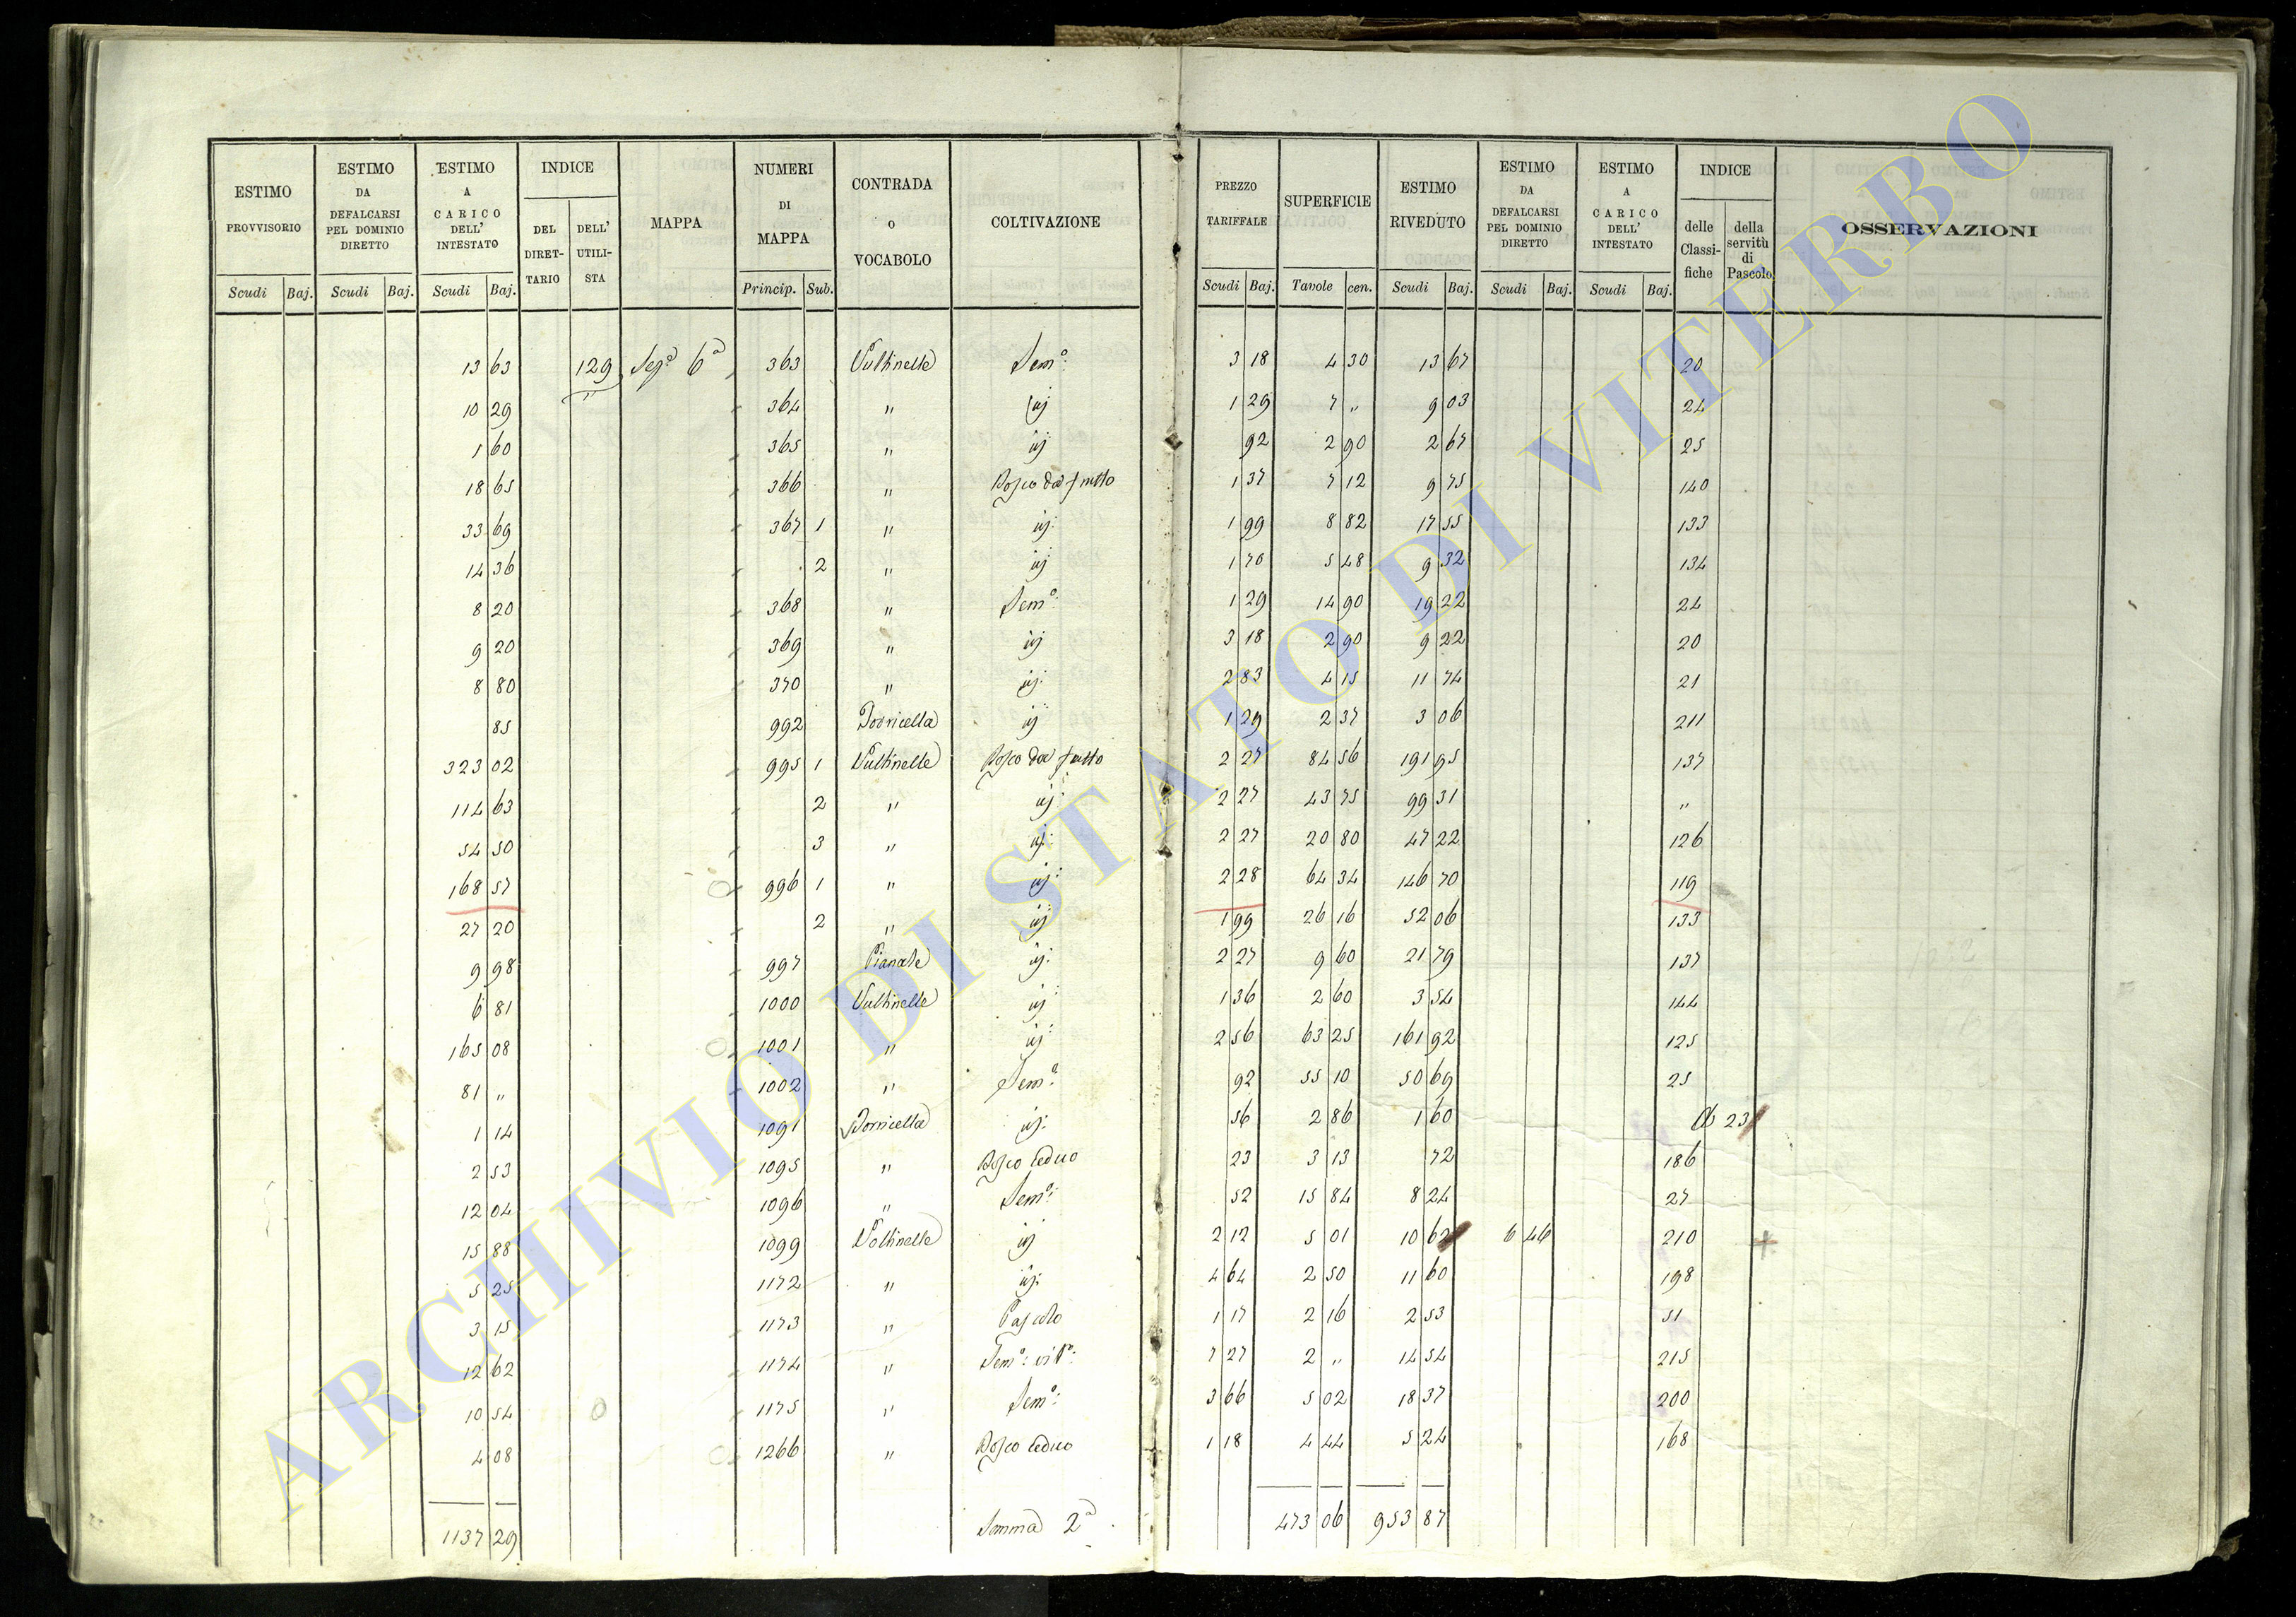 ESTIMO PROVVISORIO | ESTIMO DA DEFALCARSI PEL DOMINIO DIRETTO | ESTIMO A CARICO DELL' INTESTATO | INDICE | MAPPA | NUMERI DI MAPPA | CONTRADA o VOCABOLO | COLTIVAZIONE | PREZZO TARIFFALE | SUPERFICIE | ESTIMO RIVEDUTO | ESTIMO DA DEFALCARSI PEL DOMINIO DIRETTO | ESTIMO A CARICO DELL' INTESTATO | INDICE | OSSERVAZIONI
DEL DIRET-TARIO | DELL' UTILI-STA | delle Classi-fiche | della servitù di Pascolo
Scudi | Baj. | Scudi | Baj. | Scudi | Baj. | Princip. | Sub. | Scudi | Baj. | Tavole | cen. | Scudi | Baj. | Scudi | Baj. | Scudi | Baj.
13 63 129 Sez.ª 6ª 363 Vultinelle Sem.º 3 18 4 30 13 67 20
10 29 " 364 " id 1 29 7 " 9 03 24
1 60 365 " id 92 2 90 2 67 25
18 65 366 " Bosco da frutto 1 37 7 12 9 75 140
33 69 367 1 " id: 1 99 8 82 17 55 133
14 36 2 " id 1 70 5 48 9 32 134
8 20 368 " Sem.º 1 29 14 90 19 22 24
9 20 369 " id 3 18 2 90 9 22 20
8 80 370 " id: 2 83 4 15 11 74 21
85 992 Torricella id 1 29 2 37 3 06 211
323 02 995 1 Vultinelle Bosco da frutto 2 27 84 56 191 95 137
114 63 2 " id: 2 27 43 75 99 31 "
54 50 3 " id: 2 27 20 80 47 22 126
168 57 996 1 " id: 2 28 64 34 146 70 119
27 20 2 " id 1 99 26 16 52 06 133
9 98 997 Pianale id: 2 27 9 60 21 79 137
6 81 1000 Vultinelle id 1 36 2 60 3 54 144
165 08 1001 " id: 2 56 63 25 161 92 125
81 " 1002 " Sem.º 92 55 10 50 69 25
1 14 1091 Torricella id: 56 2 86 1 60 23
2 53 1095 " Bosco ceduo 23 3 13 72 186
12 04 1096 " Sem.º 52 15 84 8 24 27
15 88 1099 Voltinelle id 2 12 5 01 10 62 6 46 210 +
5 25 1172 " id: 4 64 2 50 11 60 198
3 15 1173 " Pascolo 1 17 2 16 2 53 51
12 62 1174 " Sem.º: vit.º: 7 27 2 " 14 54 215
10 54 1175 " Sem.º 3 66 5 02 18 37 200
4 08 1266 " Bosco ceduo 1 18 4 44 5 24 168
1137 29 Somma 2ª 473 06 953 87
ARCHIVIO DI STATO DI VITERBO